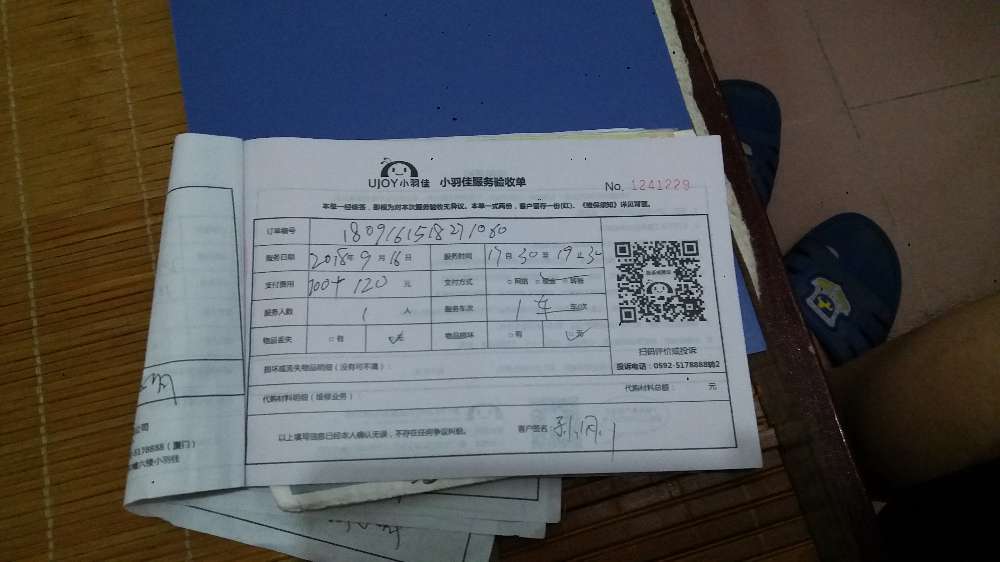 UJOY小羽佳 小羽佳服务验收单 No. 1241229
本单一经签签，即视为对本次服务验收无异议。本单一式两份，客户留存一份(红)。《维保须知》详见背面。
订单编号 1809161518271080
服务日期 2018年9月16日 服务时间 17点30至19点30
支付费用 100+120 元 支付方式 □网络 □现金 □转账
服务人数 1 人 服务车次 1车 车/次
物品丢失 □有 □无 物品损坏 □有 □无
损坏或丢失物品明细（没有可不填）：
扫码评价或投诉
投诉电话：0592-5178888转2
代购材料明细（维修业务） 代购材料总额： 元
以上填写信息已经本人确认无误，不存在任何争议纠纷。 客户签名：
公司
5178888（厦门）
六楼小羽佳